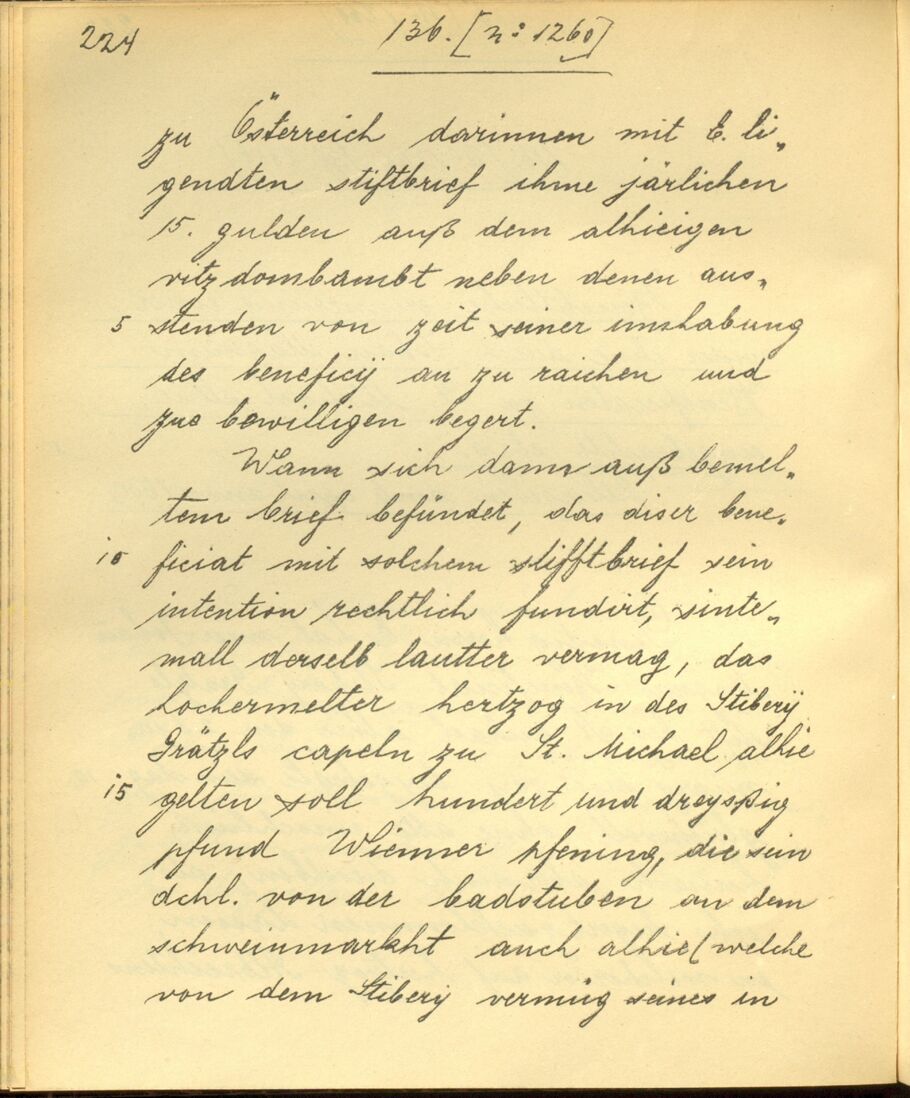 224
136. [n: 1260]
zu Österreich darinnen mit E. li„
gendten stiftbrief ihme järlichen
15. gulden auß dem alhieigen
vitzdombambt neben denen aus„
5 stenden von zeit seiner innhabung
des beneficij an zu raichen und
zue bewilligen begert.
Wann sich dann auß bemel„
tem brief befündet, das diser bene„
10 ficiat mit solchem stifftbrief sein
intention rechtlich fundirt, sinte„
mall derselb lautter vermag, das
hochermelter hertzog in des Stiberij
Grätzls capeln zu St. Michael alhie
15 gelten soll hundert und dreyssig
pfund Wienner pfening, die sein
dchl. von der badstuben an dem
schweinmarkht auch alhie (welche
von dem Stiberij vermüg seines in